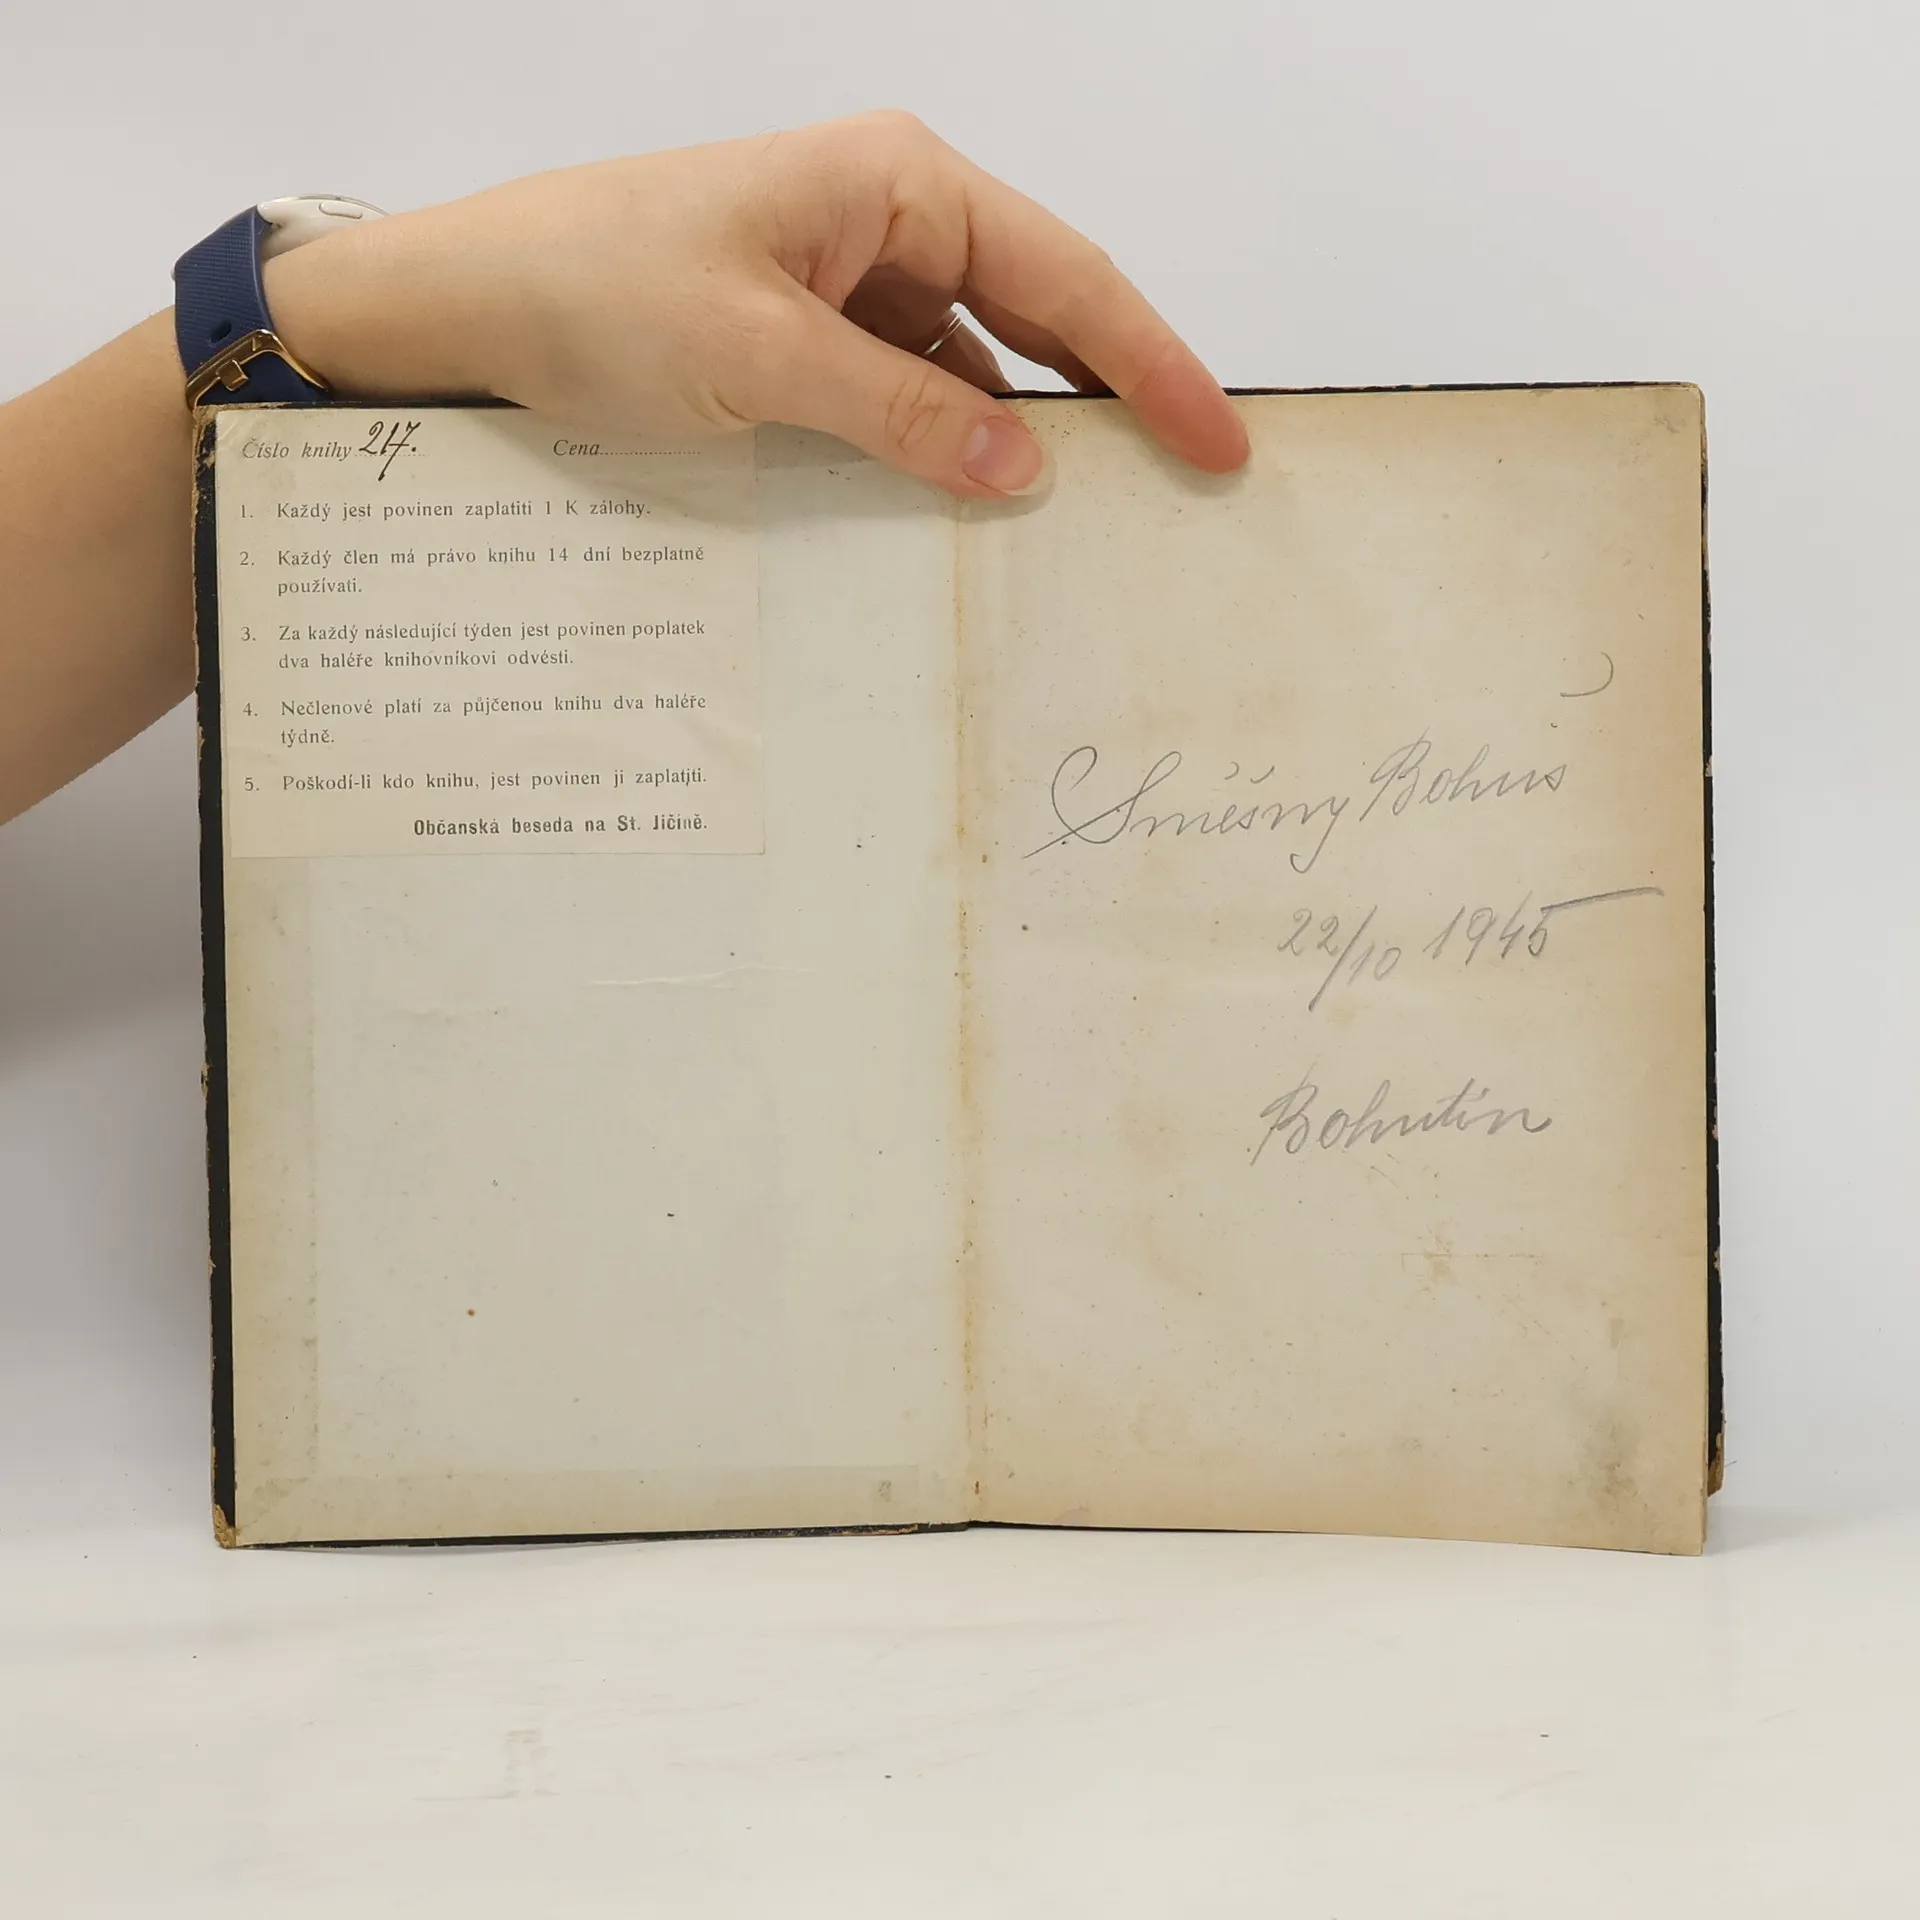 Číslo knihy 217. Cena
1. Každý jest povinen zaplatiti 1 K zálohy.
2. Každý člen má právo knihu 14 dní bezplatně
používati.
3. Za každý následující týden jest povinen poplatek
dva haléře knihovníkovi odvésti.
4. Nečlenové platí za půjčenou knihu dva haléře
týdně.
5. Poškodí-li kdo knihu, jest povinen ji zaplatiti.
Občanská beseda na St. Jičíně.
Směšny Bohuš
22/10 1945
Bohutín